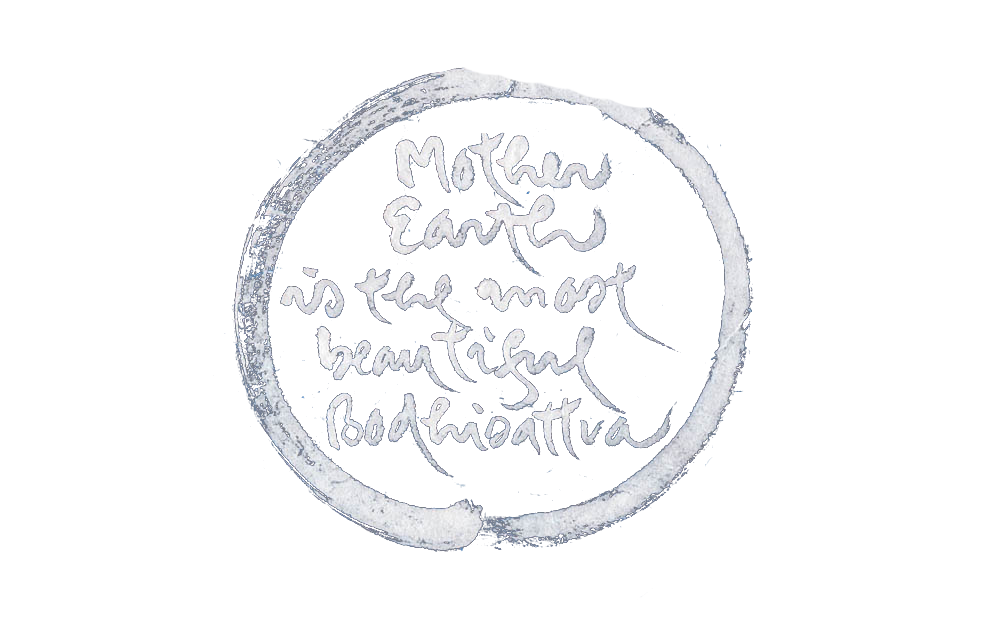 Mother
Earth
is the most
beautiful
Bodhisattva